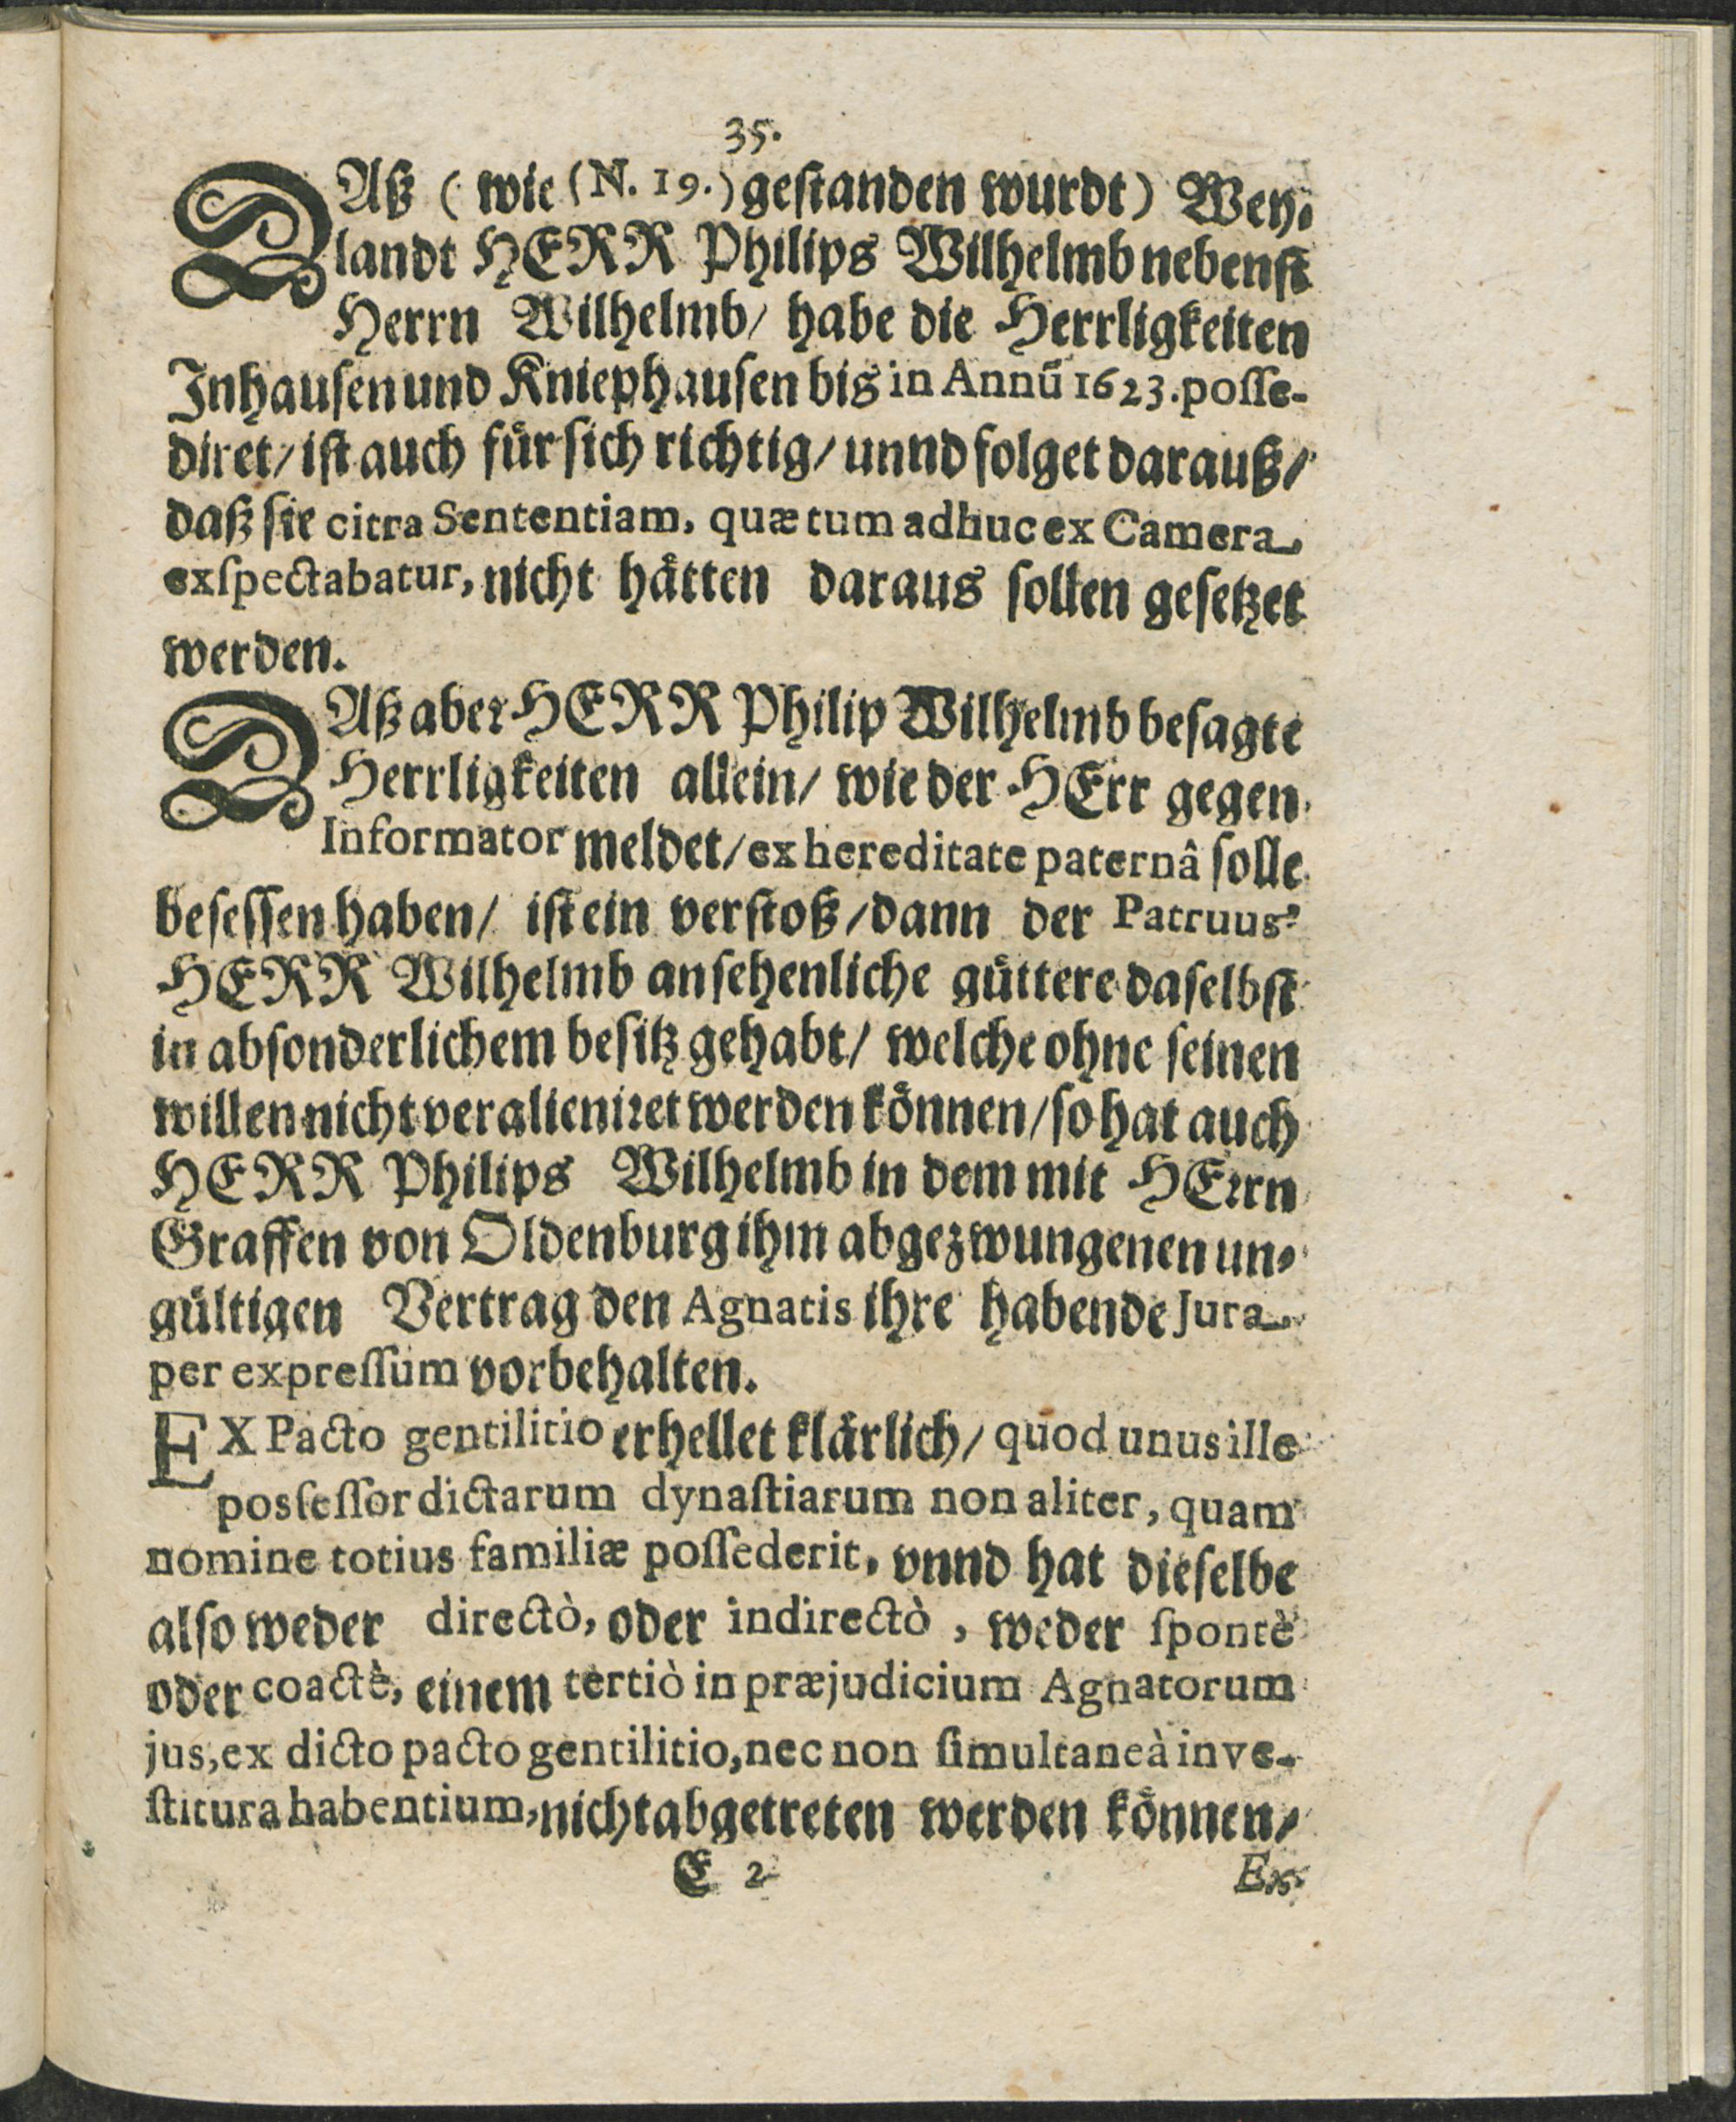 35.
DAß (wie (N. 19.) gestanden wurdt) Wey-
landt HERR Philips Wilhelmb nebenst
Herrn Wilhelmb/ habe die Herrligkeiten
Inhausen und Kniephausen bis in Annū 1623. posse-
diret/ ist auch für sich richtig/ unnd folget darauß/
daß sie citra Sententiam, quæ tum adhuc ex Camera
exspectabatur, nicht hätten daraus sollen gesetzet
werden.
DAß aber HERR Philip Wilhelmb besagte
Herrligkeiten allein/ wie der HErr gegen-
Informator meldet/ ex hereditate paternâ solle
besessen haben/ ist ein verstoß/ dann der Patruus
HERR Wilhelmb ansehenliche güttere daselbst
in absonderlichem besitz gehabt/ welche ohne seinen
willen nicht veralieniret werden können/ so hat auch
HERR Philips Wilhelmb in dem mit HErrn
Graffen von Oldenburg ihm abgezwungenen un-
gültigen Vertrag den Agnatis ihre habende Jura
per expressum vorbehalten.
EX Pacto gentilitio erhellet klärlich/ quod unus ille
possessor dictarum dynastiarum non aliter, quam
nomine totius familiæ possederit, vnnd hat dieselbe
also weder directò, oder indirectò, weder spontè
oder coactè, einem tertiò in præjudicium Agnatorum
jus, ex dicto pacto gentilitio, nec non simultaneà inve-
stitura habentium, nicht abgetreten werden können/
E 2
Ex